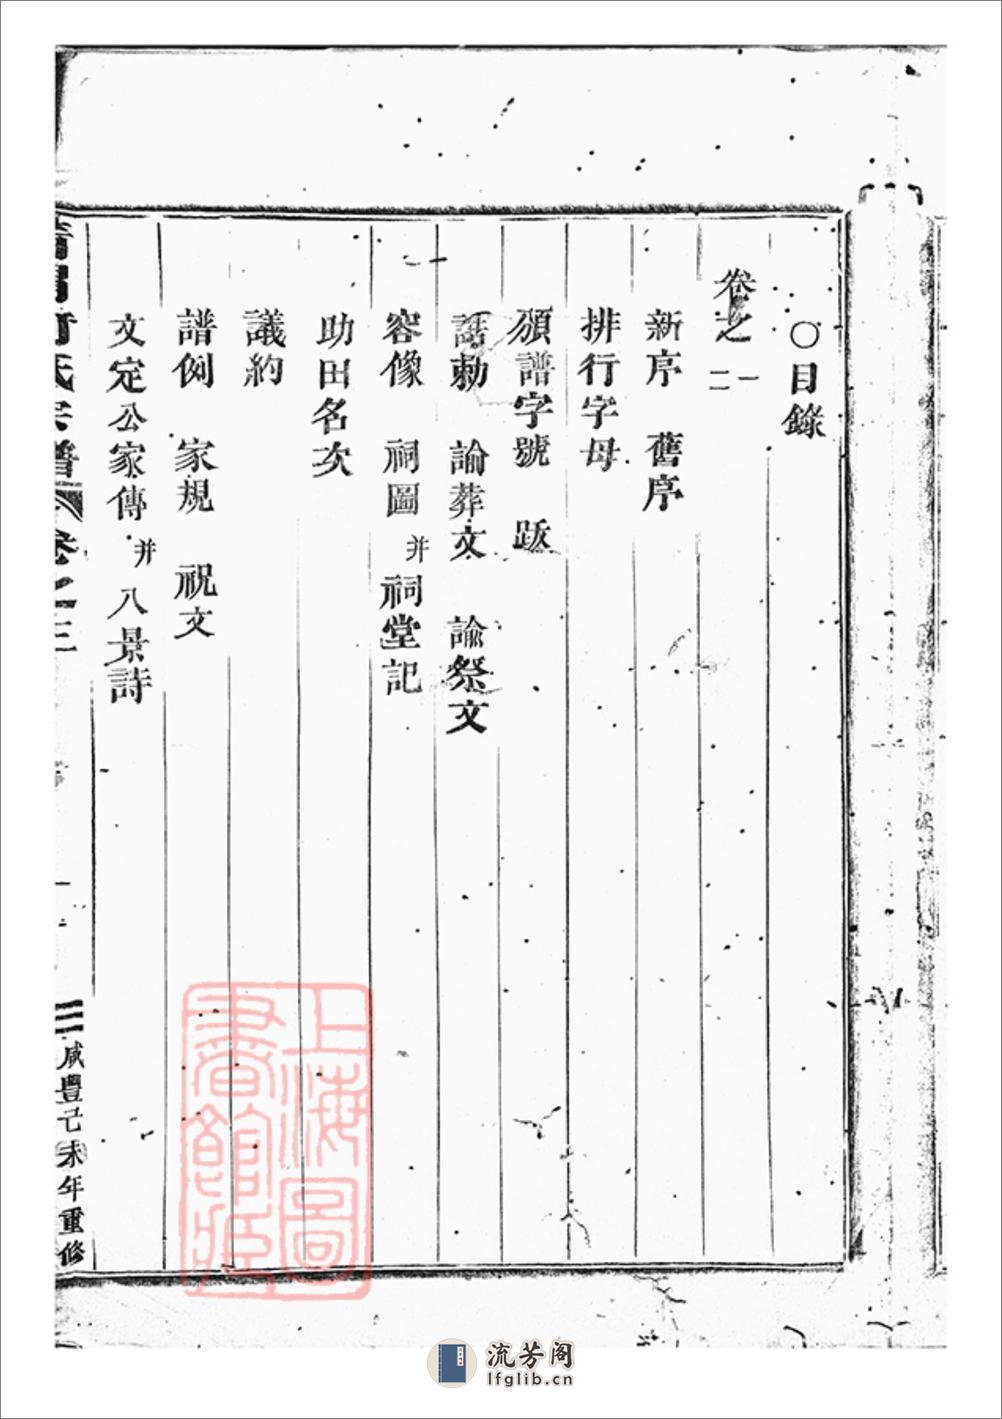 ○目錄
卷之一二
新序 舊序
排行字母
頒譜字號 跋
誥勅 諭葬文 諭祭文
容像 祠圖 并祠堂記
助田名次
議約
譜例 家規 祝文
文定公家傳 并八景詩
氏宗譜 卷之三
咸豐己未年重修
上海圖書館藏
流芳阁
lfglib.cn